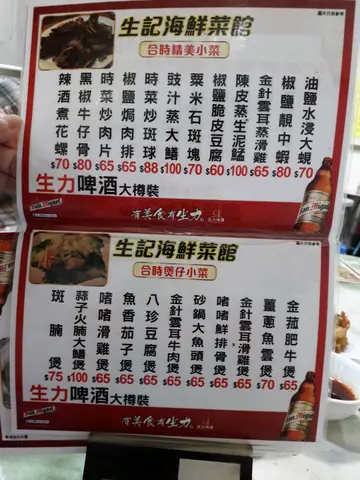 圖片只供參考
生記海鮮菜館
合時精美小菜
辣酒煮花螺 $70
黑椒牛仔骨 $80
時菜炒肉片 $65
椒鹽焗肉排 $65
時菜炒斑球 $88
豉汁蒸大鱔 $100
粟米石斑塊 $70
椒鹽脆皮豆腐 $60
陳皮蒸生泥鯭 $100
金針雲耳蒸滑雞 $65
椒鹽靚中蝦 $80
油鹽水浸大蜆 $70
生力啤酒大樽裝
有美食有生力
圖片只供參考
生記海鮮菜館
合時煲仔小菜
斑腩煲 $75
蒜子火腩大鱔煲 $100
啫啫滑雞煲 $65
魚香茄子煲 $65
八珍豆腐煲 $65
金針雲耳牛肉煲 $65
砂鍋大魚頭煲 $65
啫啫鮮排骨煲 $65
金針雲耳滑雞煲 $65
薑蔥魚雲煲 $70
金菰肥牛煲 $65
生力啤酒大樽裝
百美食有生力